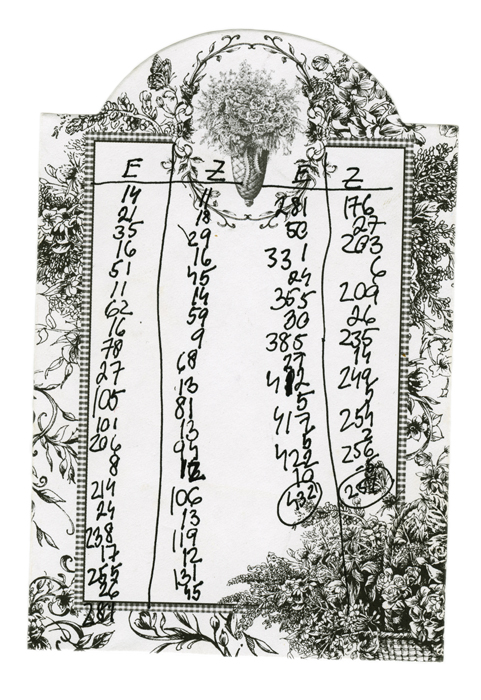 E
14
21
35
16
51
11
62
16
78
27
105
101
206
8
214
24
238
17
255
26
281
Z
11
18
29
16
45
14
59
9
68
13
81
13
94
12
106
13
119
12
131
45
E
281
50
33 1
24
355
30
385
27
412
5
417
5
422
10
432
Z
176
27
203
6
209
26
235
14
249
5
254
2
256